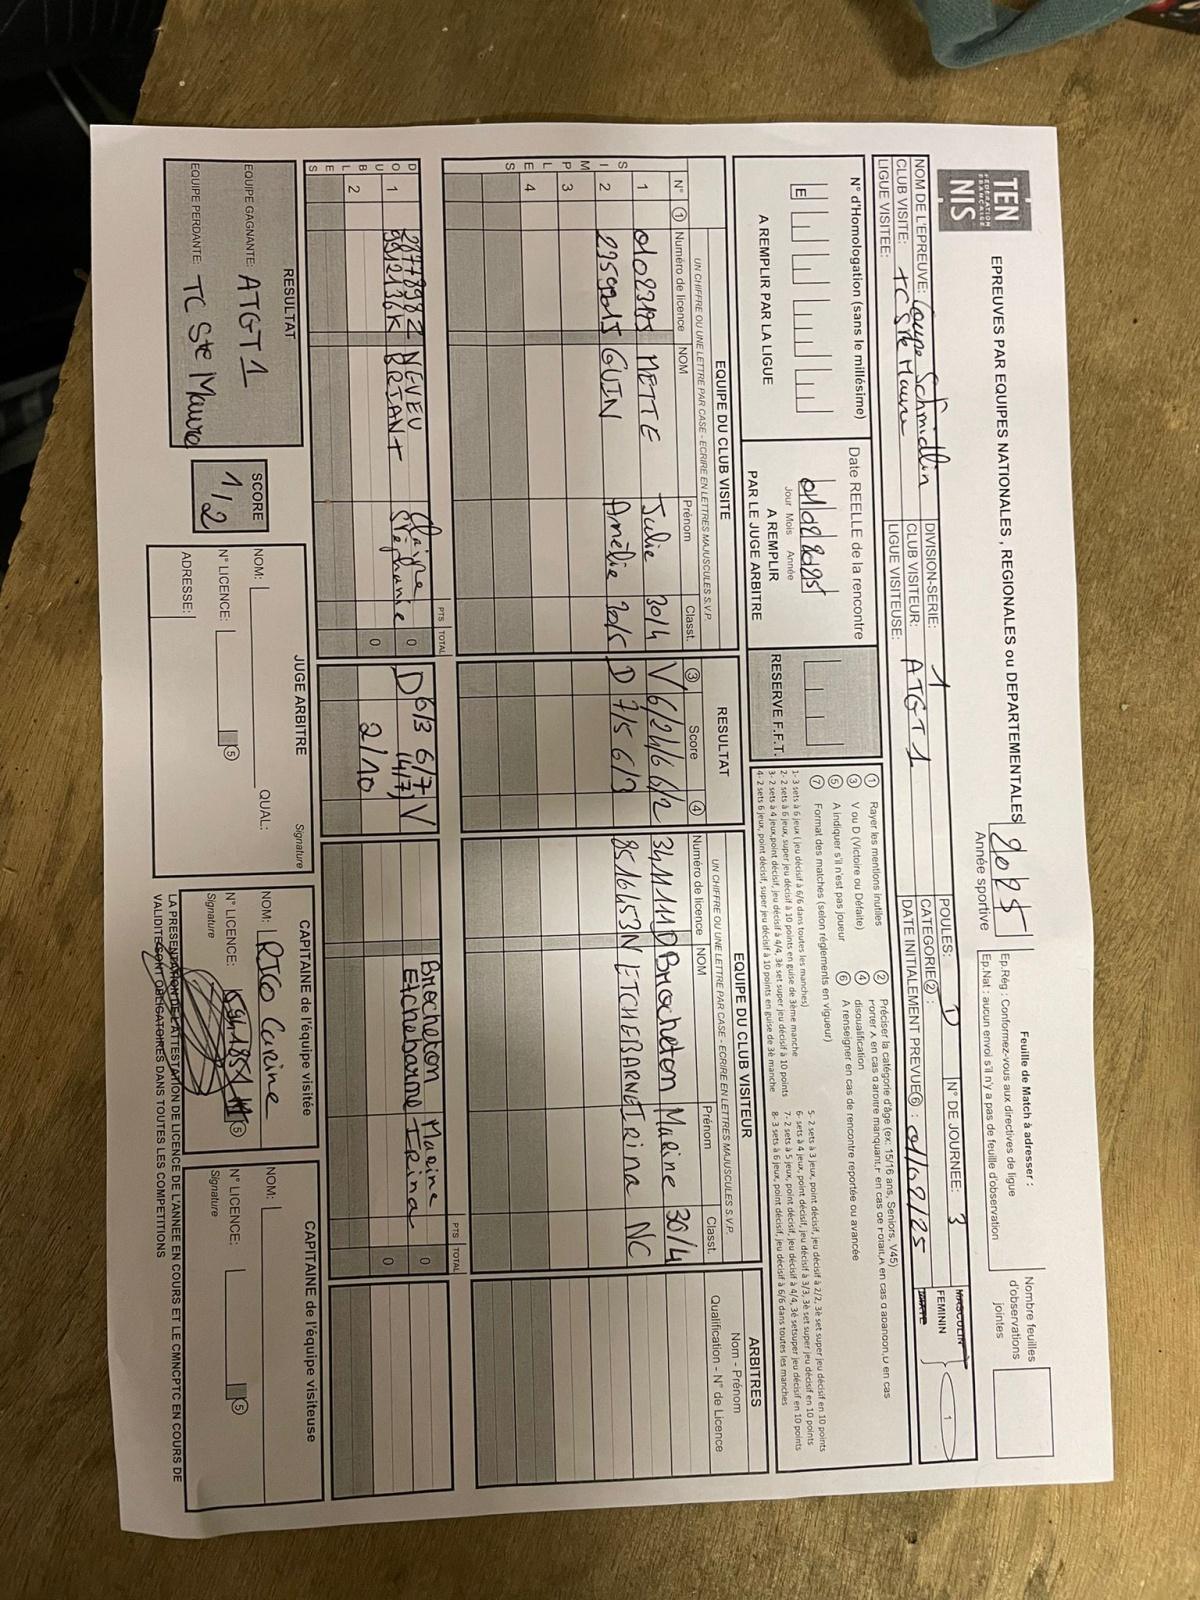 TEN
NIS
FÉDÉRATION FRANÇAISE
EPREUVES PAR EQUIPES NATIONALES , REGIONALES ou DEPARTEMENTALES
2025
Année sportive
Feuille de Match à adresser :
Ep.Rég : Conformez-vous aux directives de ligue
Ep.Nat : aucun envoi s'il n'y a pas de feuille d'observation
Nombre feuilles
d'observations
jointes
NOM DE L'EPREUVE: Coupe Schmidlin
DIVISION-SERIE: 1
POULES: D
N° DE JOURNEE: 3
MASCULIN
CLUB VISITE: TC Ste Maure
CLUB VISITEUR: ATGT 1
CATEGORIE② :
FEMININ
1
LIGUE VISITEE:
LIGUE VISITEUSE:
DATE INITIALEMENT PREVUE⑥ : 01/02/25
MIXTE
N° d'Homologation (sans le millésime)
E
A REMPLIR PAR LA LIGUE
Date REELLE de la rencontre
01022025
Jour Mois Année
A REMPLIR
PAR LE JUGE ARBITRE
RESERVE F.F.T.
① Rayer les mentions inutiles
③ V ou D (Victoire ou Défaite)
⑤ A indiquer s'il n'est pas joueur
⑦ Format des matches (selon réglements en vigueur)
② Préciser la catégorie d'âge (ex: 15/16 ans, Seniors, V45)
④ Porter X en cas d'arbitre manquant,F en cas de Forfait,A en cas d'abandon,D en cas
disqualification
⑥ A renseigner en cas de rencontre reportée ou avancée
1- 3 sets à 6 jeux ( jeu décisif à 6/6 dans toutes les manches)
2- 2 sets à 6 jeux, super jeu décisif à 10 points en guise de 3ème manche
3- 2 sets à 4 jeux,point décisif, jeu décisif à 4/4, 3è set super jeu décisif à 10 points
4- 2 sets 6 jeux, point décisif, super jeu décisif à 10 points en guise de 3è manche
5- 2 sets à 3 jeux, point décisif, jeu décisif à 2/2, 3è set super jeu décisif en 10 points
6- sets à 4 jeux, point décisif, jeu décisif à 3/3, 3è set super jeu décisif en 10 points
7- 2 sets à 5 jeux, point décisif, jeu décisif à 4/4, 3è setsuper jeu décisif en 10 points
8- 3 sets à 6 jeux, point décisif, jeu décisif à 6/6 dans toutes les manches
EQUIPE DU CLUB VISITE
RESULTAT
EQUIPE DU CLUB VISITEUR
ARBITRES
UN CHIFFRE OU UNE LETTRE PAR CASE - ECRIRE EN LETTRES MAJUSCULES S.V.P.
UN CHIFFRE OU UNE LETTRE PAR CASE - ECRIRE EN LETTRES MAJUSCULES S.V.P.
Nom - Prénom
N° ① Numéro de licence NOM Prénom Classt. ③ Score ④ Numéro de licence NOM Prénom Classt. Qualification - N° de Licence
SIMPLES
1 METTE Julie 30/4 V 6/2 4/6 6/2 Briocheton Marine 30/4
2 GUIN Amélie 30/5 D 7/5 6/3 8516453N ETCHEBARNE Irina NC
3
4
PTS TOTAL
PTS TOTAL
DOUBLES
1 NEVEU Claire 0 D 6/3 6/7 V Briocheton Marine 0
BRIANT Stéphanie (4/7) Etchebarne Irina
2 0 2/10 0
RESULTAT
EQUIPE GAGNANTE: ATGT 1
EQUIPE PERDANTE: TC Ste Maure
SCORE
1/2
JUGE ARBITRE
Signature
NOM:
QUAL:
N° LICENCE: ⑤
ADRESSE:
CAPITAINE de l'équipe visitée
NOM: RICO Carine
N° LICENCE: ⑤
Signature
CAPITAINE de l'équipe visiteuse
NOM:
N° LICENCE: ⑤
Signature
LA PRESENTATION DE L'ATTESTATION DE LICENCE DE L'ANNEE EN COURS ET LE CMNCPTC EN COURS DE
VALIDITE SONT OBLIGATOIRES DANS TOUTES LES COMPETITIONS